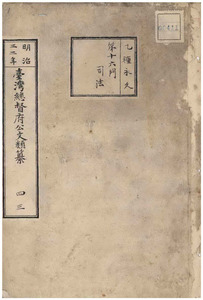 乙種永久
第十六門
司法
明治
三三年
臺灣總督府公文類纂
四三